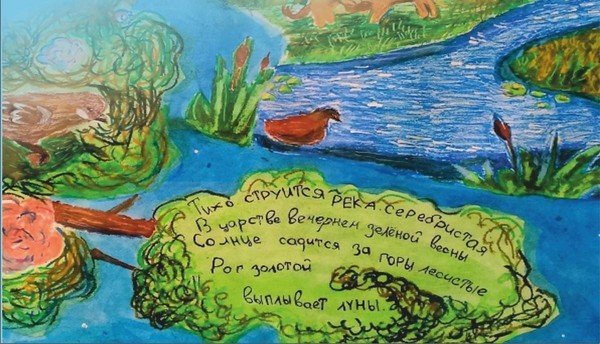 Тихо струится река серебристая
В царстве вечернем зелёной весны
Солнце садится за горы лесистые
Рог золотой
выплывает луны.